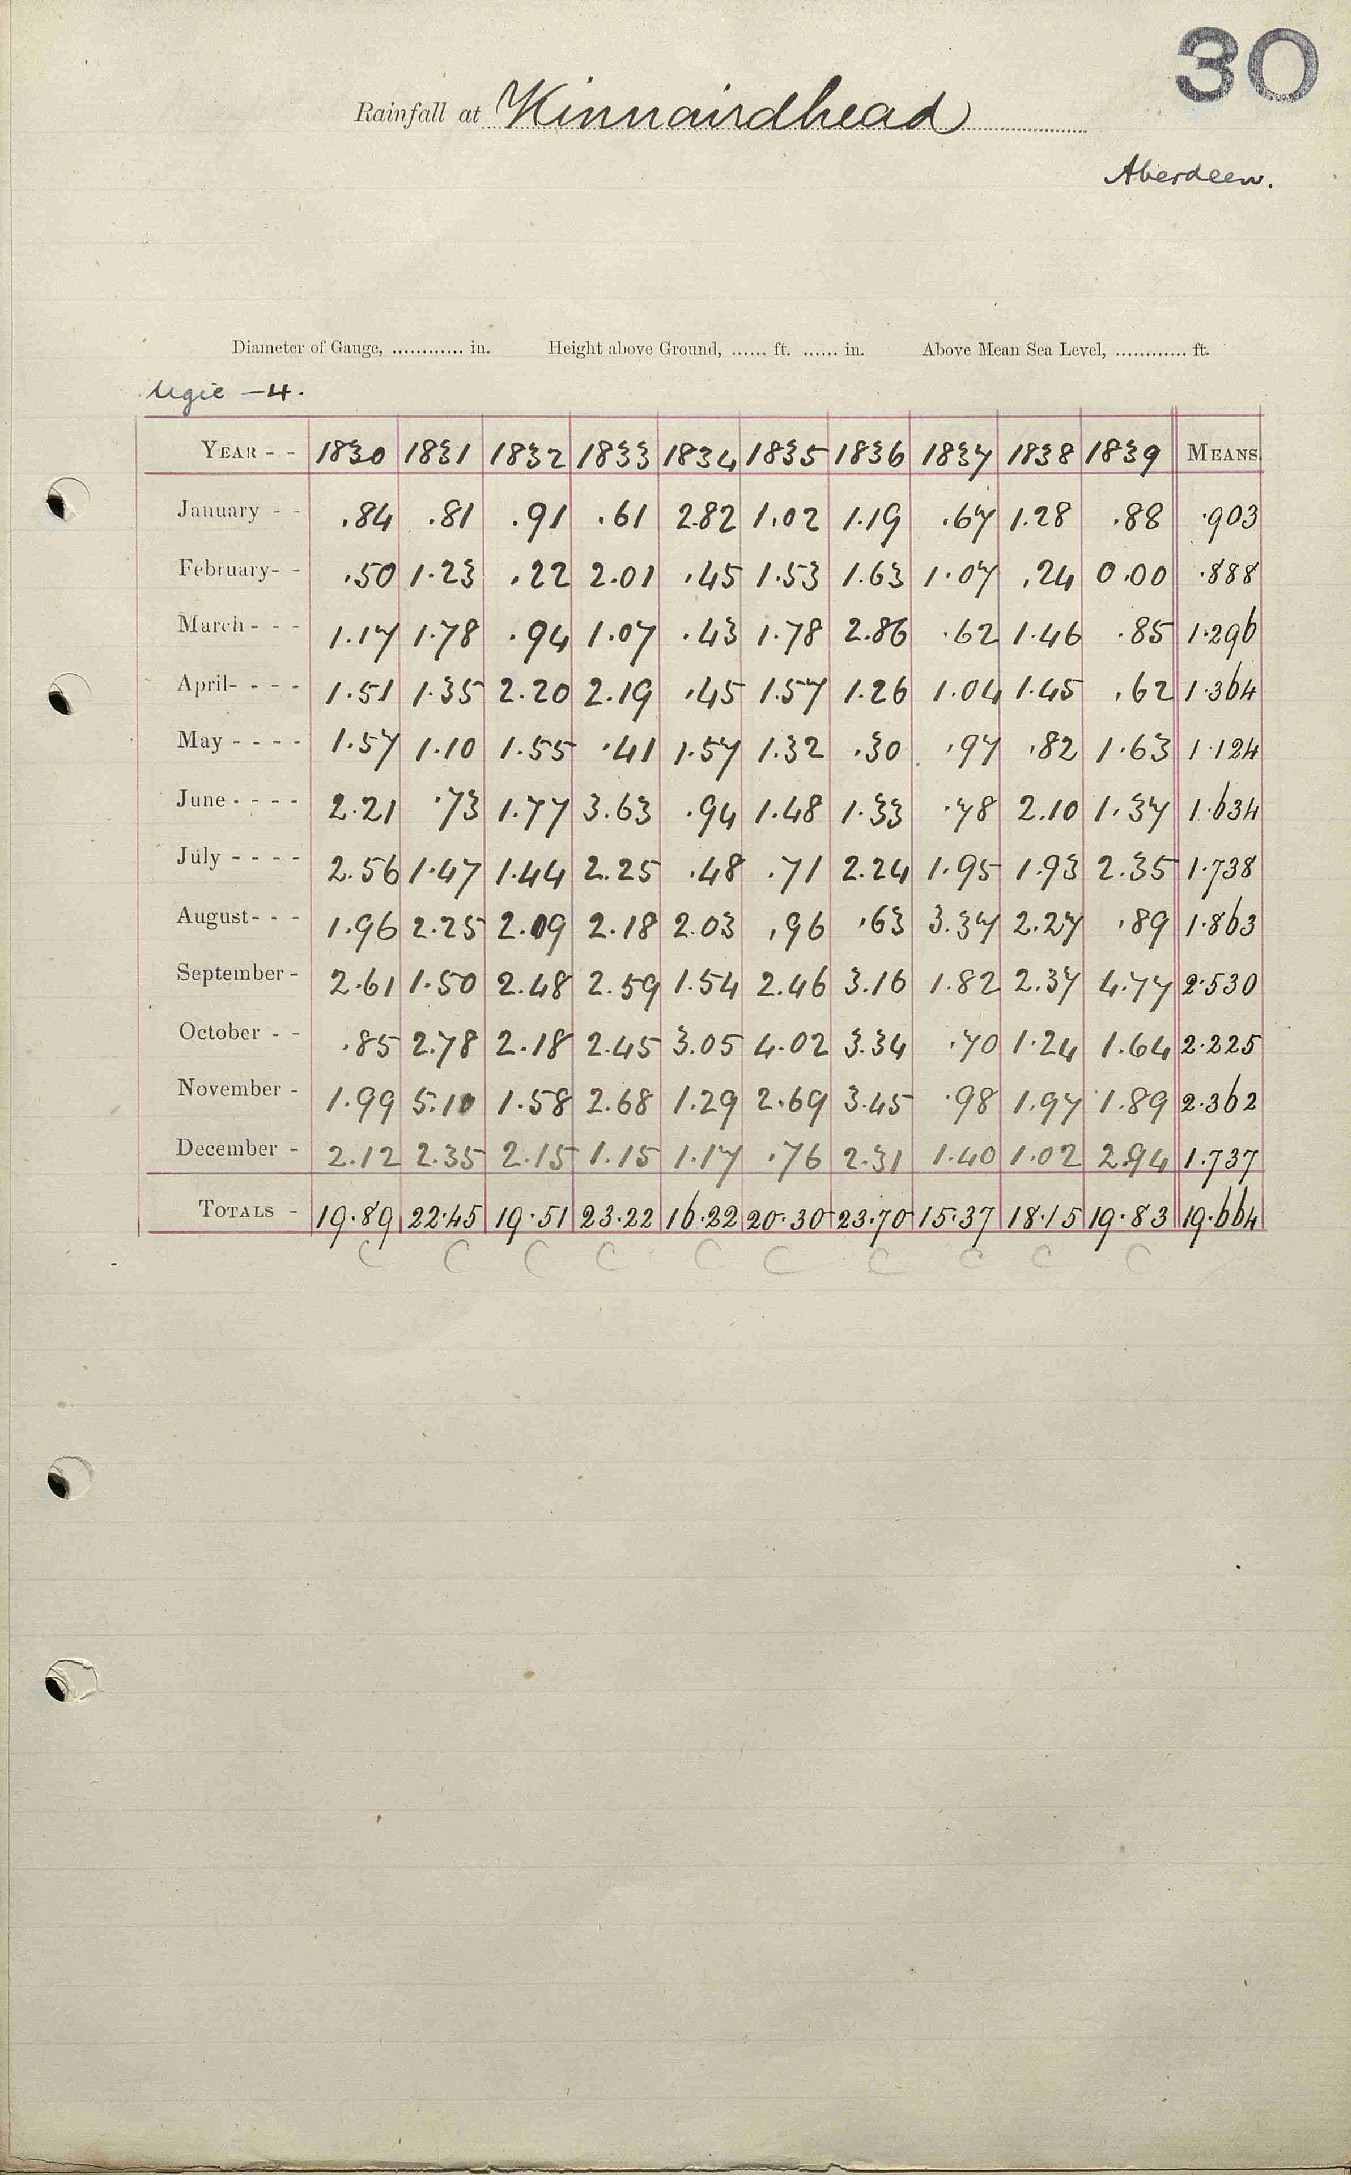 30
Rainfall at Kinnairdhead
Aberdeen.
Diameter of Gauge, ............ in. Height above Ground, ...... ft. ...... in. Above Mean Sea Level, ............ ft.
Ugie — 4.
YEAR - - 1830 1831 1832 1833 1834 1835 1836 1837 1838 1839 MEANS.
January - - .84 .81 .91 .61 2.82 1.02 1.19 .67 1.28 .88 .903
February - - .50 1.23 .22 2.01 .45 1.53 1.63 1.07 .24 0.00 .888
March - - - 1.17 1.78 .94 1.07 .43 1.78 2.86 .62 1.46 .85 1.296
April - - - - 1.51 1.35 2.20 2.19 .45 1.57 1.26 1.04 1.45 .62 1.364
May - - - - 1.57 1.10 1.55 .41 1.57 1.32 .30 .97 .82 1.63 1.124
June - - - - 2.21 .73 1.77 3.63 .94 1.48 1.33 .78 2.10 1.37 1.634
July - - - - 2.56 1.47 1.44 2.25 .48 .71 2.24 1.95 1.93 2.35 1.738
August - - - 1.96 2.25 2.09 2.18 2.03 .96 .63 3.37 2.27 .89 1.863
September - 2.61 1.50 2.48 2.59 1.54 2.46 3.16 1.82 2.37 4.77 2.530
October - - .85 2.78 2.18 2.45 3.05 4.02 3.34 .70 1.24 1.64 2.225
November - 1.99 5.10 1.58 2.68 1.29 2.69 3.45 .98 1.97 1.89 2.362
December - 2.12 2.35 2.15 1.15 1.17 .76 2.31 1.40 1.02 2.94 1.737
TOTALS - 19.89 22.45 19.51 23.22 16.22 20.30 23.70 15.37 18.15 19.83 19.664
C C C C C C C C C C